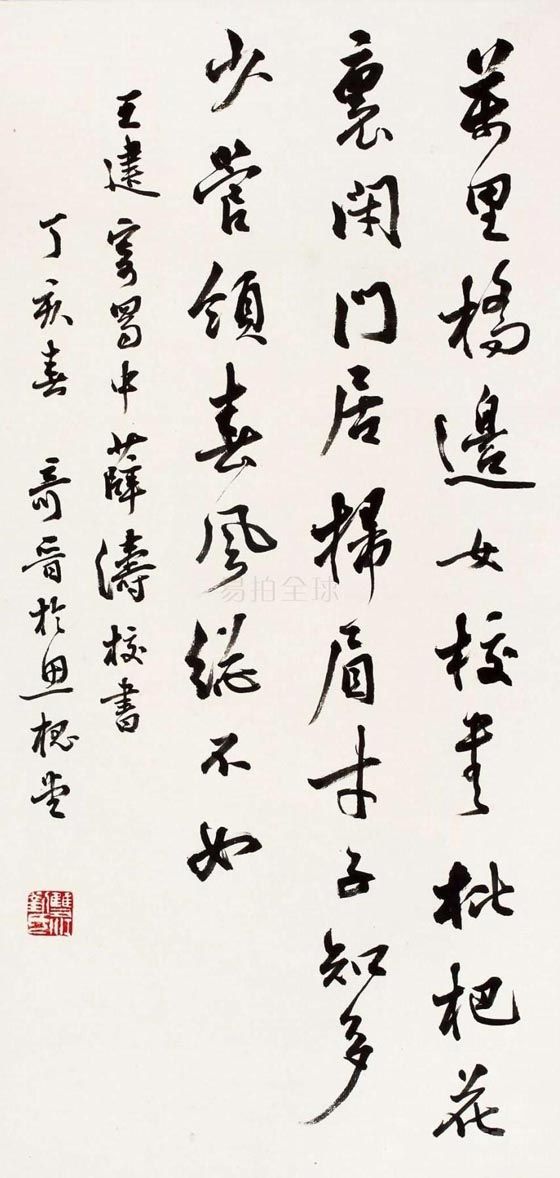 萬里橋邊女校書枇杷花
裏閑門居掃眉才子知多
少管領春風總不如
王建寄蜀中薛濤校書
丁亥春 奇晉於思槐堂
易拍全球